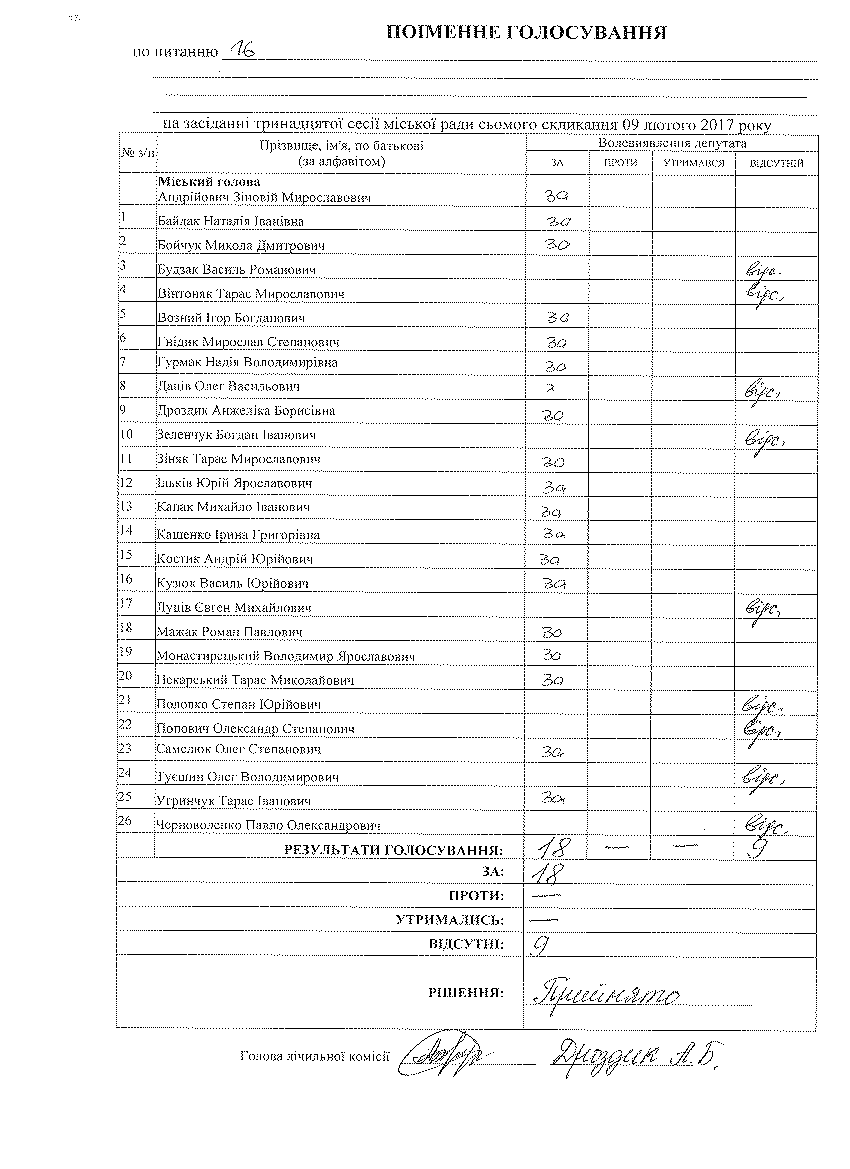 ПОІМЕННЕ ГОЛОСУВАННЯ
по питанню 16
на засіданні тринадцятої сесії міської ради сьомого скликання 09 лютого 2017 року
№ з/п Прізвище, ім'я, по батькові (за алфавітом) Волевиявлення депутата
ЗА ПРОТИ УТРИМАВСЯ ВІДСУТНІЙ
Міський голова
Андрійович Зіновій Мирославович за
1 Байдак Наталія Іванівна за
2 Бойчук Микола Дмитрович за
3 Будзак Василь Романович відс.
4 Вінтоняк Тарас Мирославович відс.
5 Возний Ігор Богданович за
6 Гнідик Мирослав Степанович за
7 Гурмак Надія Володимирівна за
8 Даців Олег Васильович відс.
9 Дроздик Анжеліка Борисівна за
10 Зеленчук Богдан Іванович відс.
11 Зіняк Тарас Мирославович за
12 Ільків Юрій Ярославович за
13 Капак Михайло Іванович за
14 Кашенко Ірина Григорівна за
15 Костик Андрій Юрійович за
16 Кузюк Василь Юрійович за
17 Луців Євген Михайлович відс.
18 Мажак Роман Павлович за
19 Монастирецький Володимир Ярославович за
20 Пекарський Тарас Миколайович за
21 Половко Степан Юрійович відс.
22 Попович Олександр Степанович відс.
23 Самелюк Олег Степанович за
24 Туєшин Олег Володимирович відс.
25 Угринчук Тарас Іванович за
26 Черноволенко Павло Олександрович відс.
РЕЗУЛЬТАТИ ГОЛОСУВАННЯ: 18 — — 9
ЗА: 18
ПРОТИ: —
УТРИМАЛИСЬ: —
ВІДСУТНІ: 9
РІШЕННЯ: Прийнято
Голова лічильної комісії Дроздик А.Б.